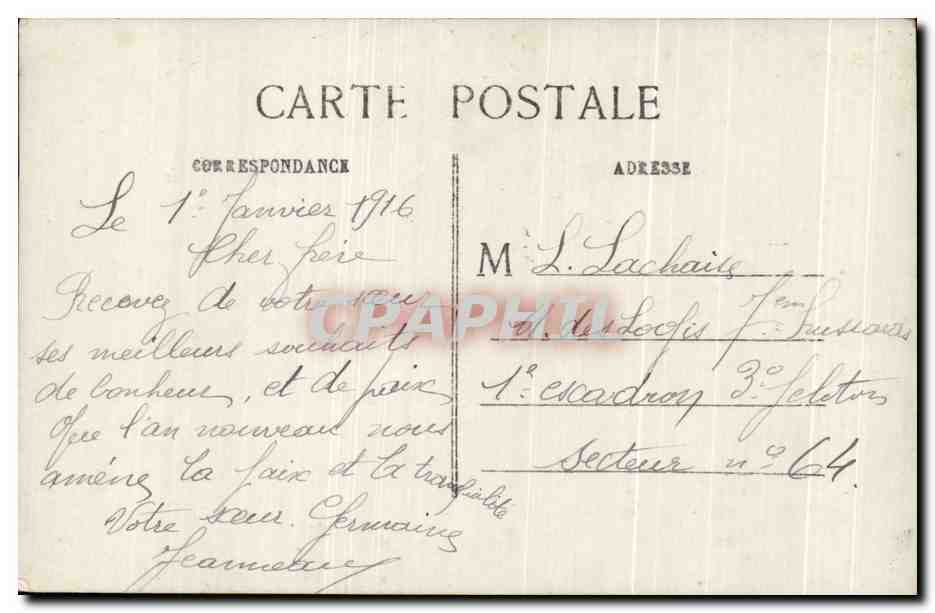 CARTE POSTALE
CORRESPONDANCE
Le 1º Janvier 1916
Cher frère
Recevez de votre sœur
ses meilleurs souhaits
de bonheur, et de paix
Que l'an nouveau nous
amène la paix et la tranquilité
Votre sœur Germaine
Jeanneau
ADRESSE
M L. Lachaise
M. des Logis 7em hussards
1º escadron 3º peloton
Secteur nº 64.
CPAPHIL